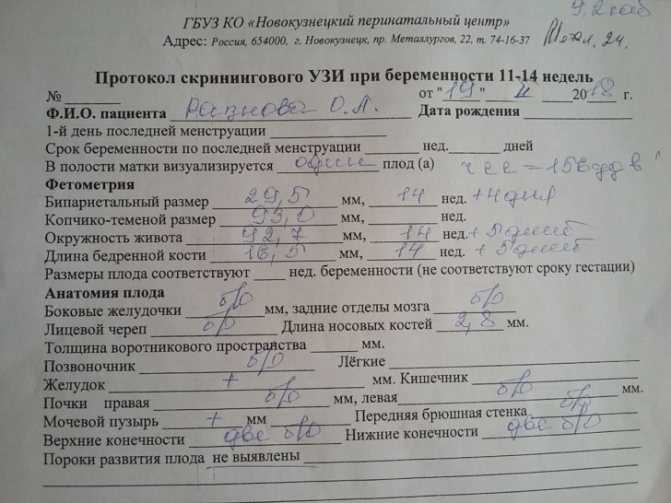 9,2 каб
ГБУЗ КО «Новокузнецкий перинатальный центр»
Адрес: Россия, 654000, г. Новокузнецк, пр. Металлургов, 22, т. 74-16-37
24.
Протокол скринингового УЗИ при беременности 11-14 недель
№ ______ от "19" 2018 г.
Ф.И.О. пациента О.А. Дата рождения
1-й день последней менструации
Срок беременности по последней менструации ______ нед. ______ дней
В полости матки визуализируется один плод (а) чсс = 156
Фетометрия
Бипариетальный размер 29,5 мм, 14 нед. +4 дня
Копчико-теменой размер 93,0 мм, ______ нед.
Окружность живота 92,7 мм, 14 нед. + 5 дней
Длина бедренной кости 16,5 мм, 14 нед. + 5 дней
Размеры плода соответствуют ____ нед. беременности (не соответствуют сроку гестации)
Анатомия плода
Боковые желудочки б/о мм, задние отделы мозга б/о
Лицевой череп б/о Длина носовых костей 2,8 мм.
Толщина воротникового пространства ______ мм.
Позвоночник б/о Лёгкие
Желудок + мм. Кишечник
Почки правая б/о мм, левая б/о мм.
Мочевой пузырь + мм Передняя брюшная стенка б/о
Верхние конечности две б/о Нижние конечности две б/о
Пороки развития плода не выявлены